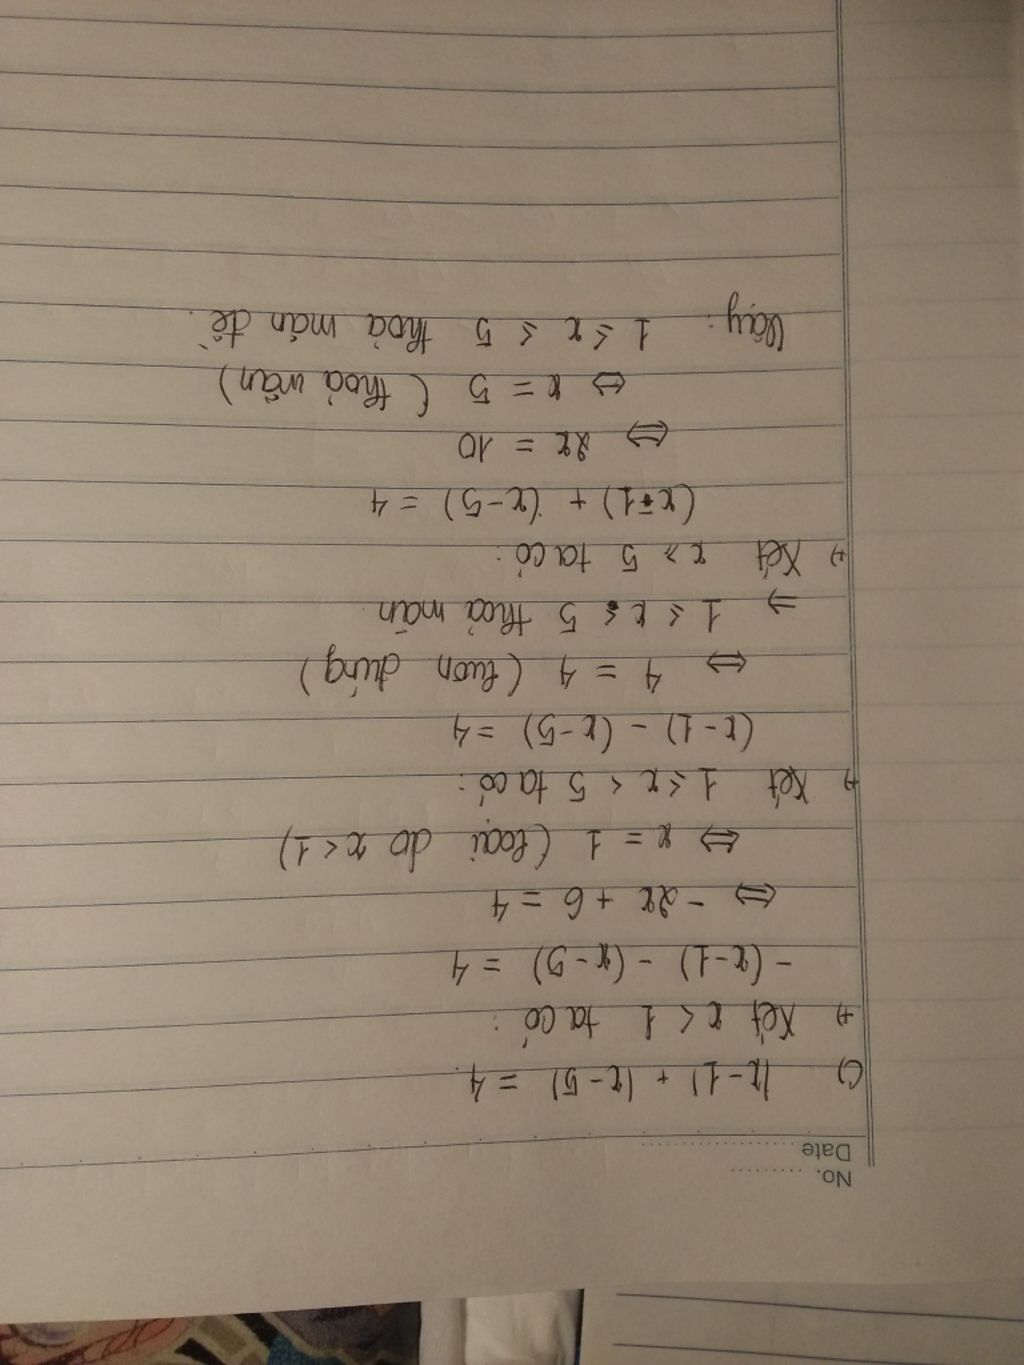 No. .........
Date ....................
c) |x-1| + |x-5| = 4.
+) Xét x < 1 ta có:
-(x-1) - (x-5) = 4
⇔ -2x + 6 = 4
⇔ x = 1 (loại do x < 1)
+) Xét 1 ≤ x < 5 ta có:
(x-1) - (x-5) = 4
⇔ 4 = 4 (luôn đúng)
⇒ 1 ≤ x < 5 thoả mãn
+) Xét x ≥ 5 ta có:
(x-1) + (x-5) = 4
⇔ 2x = 10
⇔ x = 5 (thoả mãn)
Vậy: 1 ≤ x ≤ 5 thoả mãn đề.